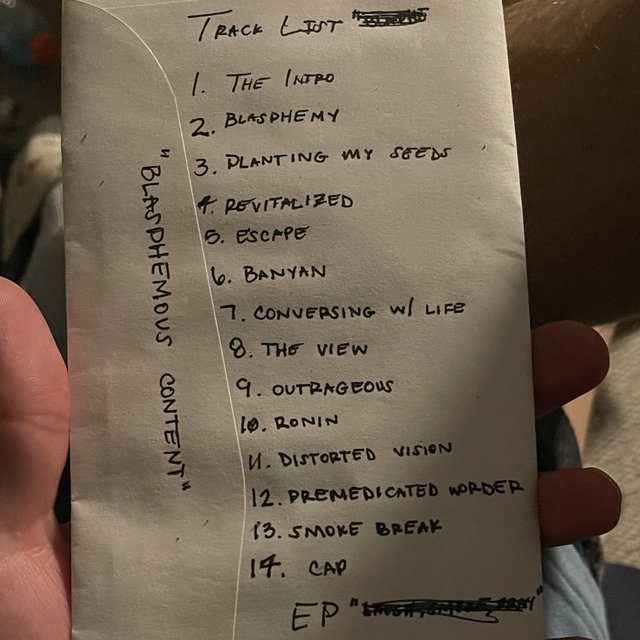 TRACK LIST
1. THE INTRO
2. BLASPHEMY
3. PLANTING MY SEEDS
4. REVITALIZED
5. ESCAPE
6. BANYAN
7. CONVERSING W/ LIFE
8. THE VIEW
9. OUTRAGEOUS
10. RONIN
11. DISTORTED VISION
12. PREMEDICATED WORDER
13. SMOKE BREAK
14. CAP
EP
"BLASPHEMOUS CONTENT"